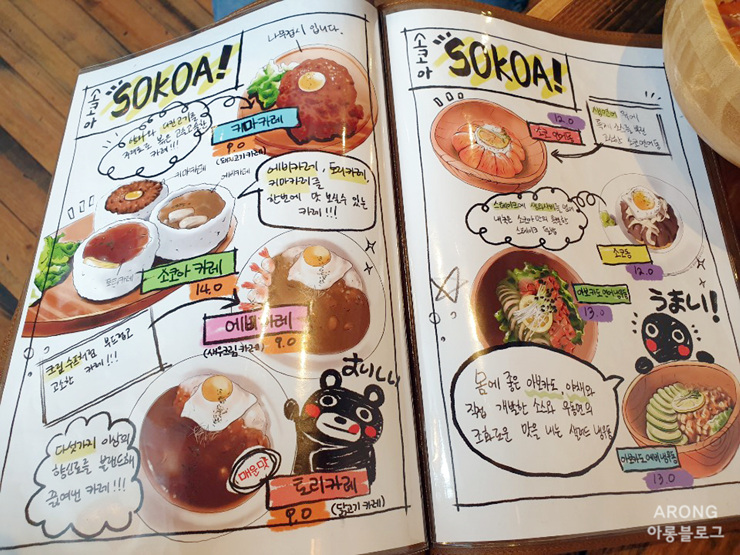 소코아
SOKOA!
나무접시 입니다.
키마카레
9.0
(돼지고기카레)
카레!!!
키마카레
에비카레
토리카레
에비카레, 토리카레,
키마카레를
한번에 맛 보실수 있는
카레!!!
소코아 카레
14.0
에비카레
(새우크림 카레)
9.0
크림 수프처럼 부드럽고
고소한 카레!!!
おいしい
다섯가지 이상의
향신료를 블랜드해
끓여낸 카레!!!
매운맛
토리카레
9.0
(닭고기 카레)
소코아
SOKOA!
12.0
소코 연어동
소코동
12.0
아보카도 연어 냉우동
13.0
うまい!
몸에 좋은 아보카도, 야채와
직접 개발한 소스와 우동면의
조화로운 맛을 내는 샐러드 냉우동
아보카도 야채 냉우동
13.0
ARONG
아롱블로그